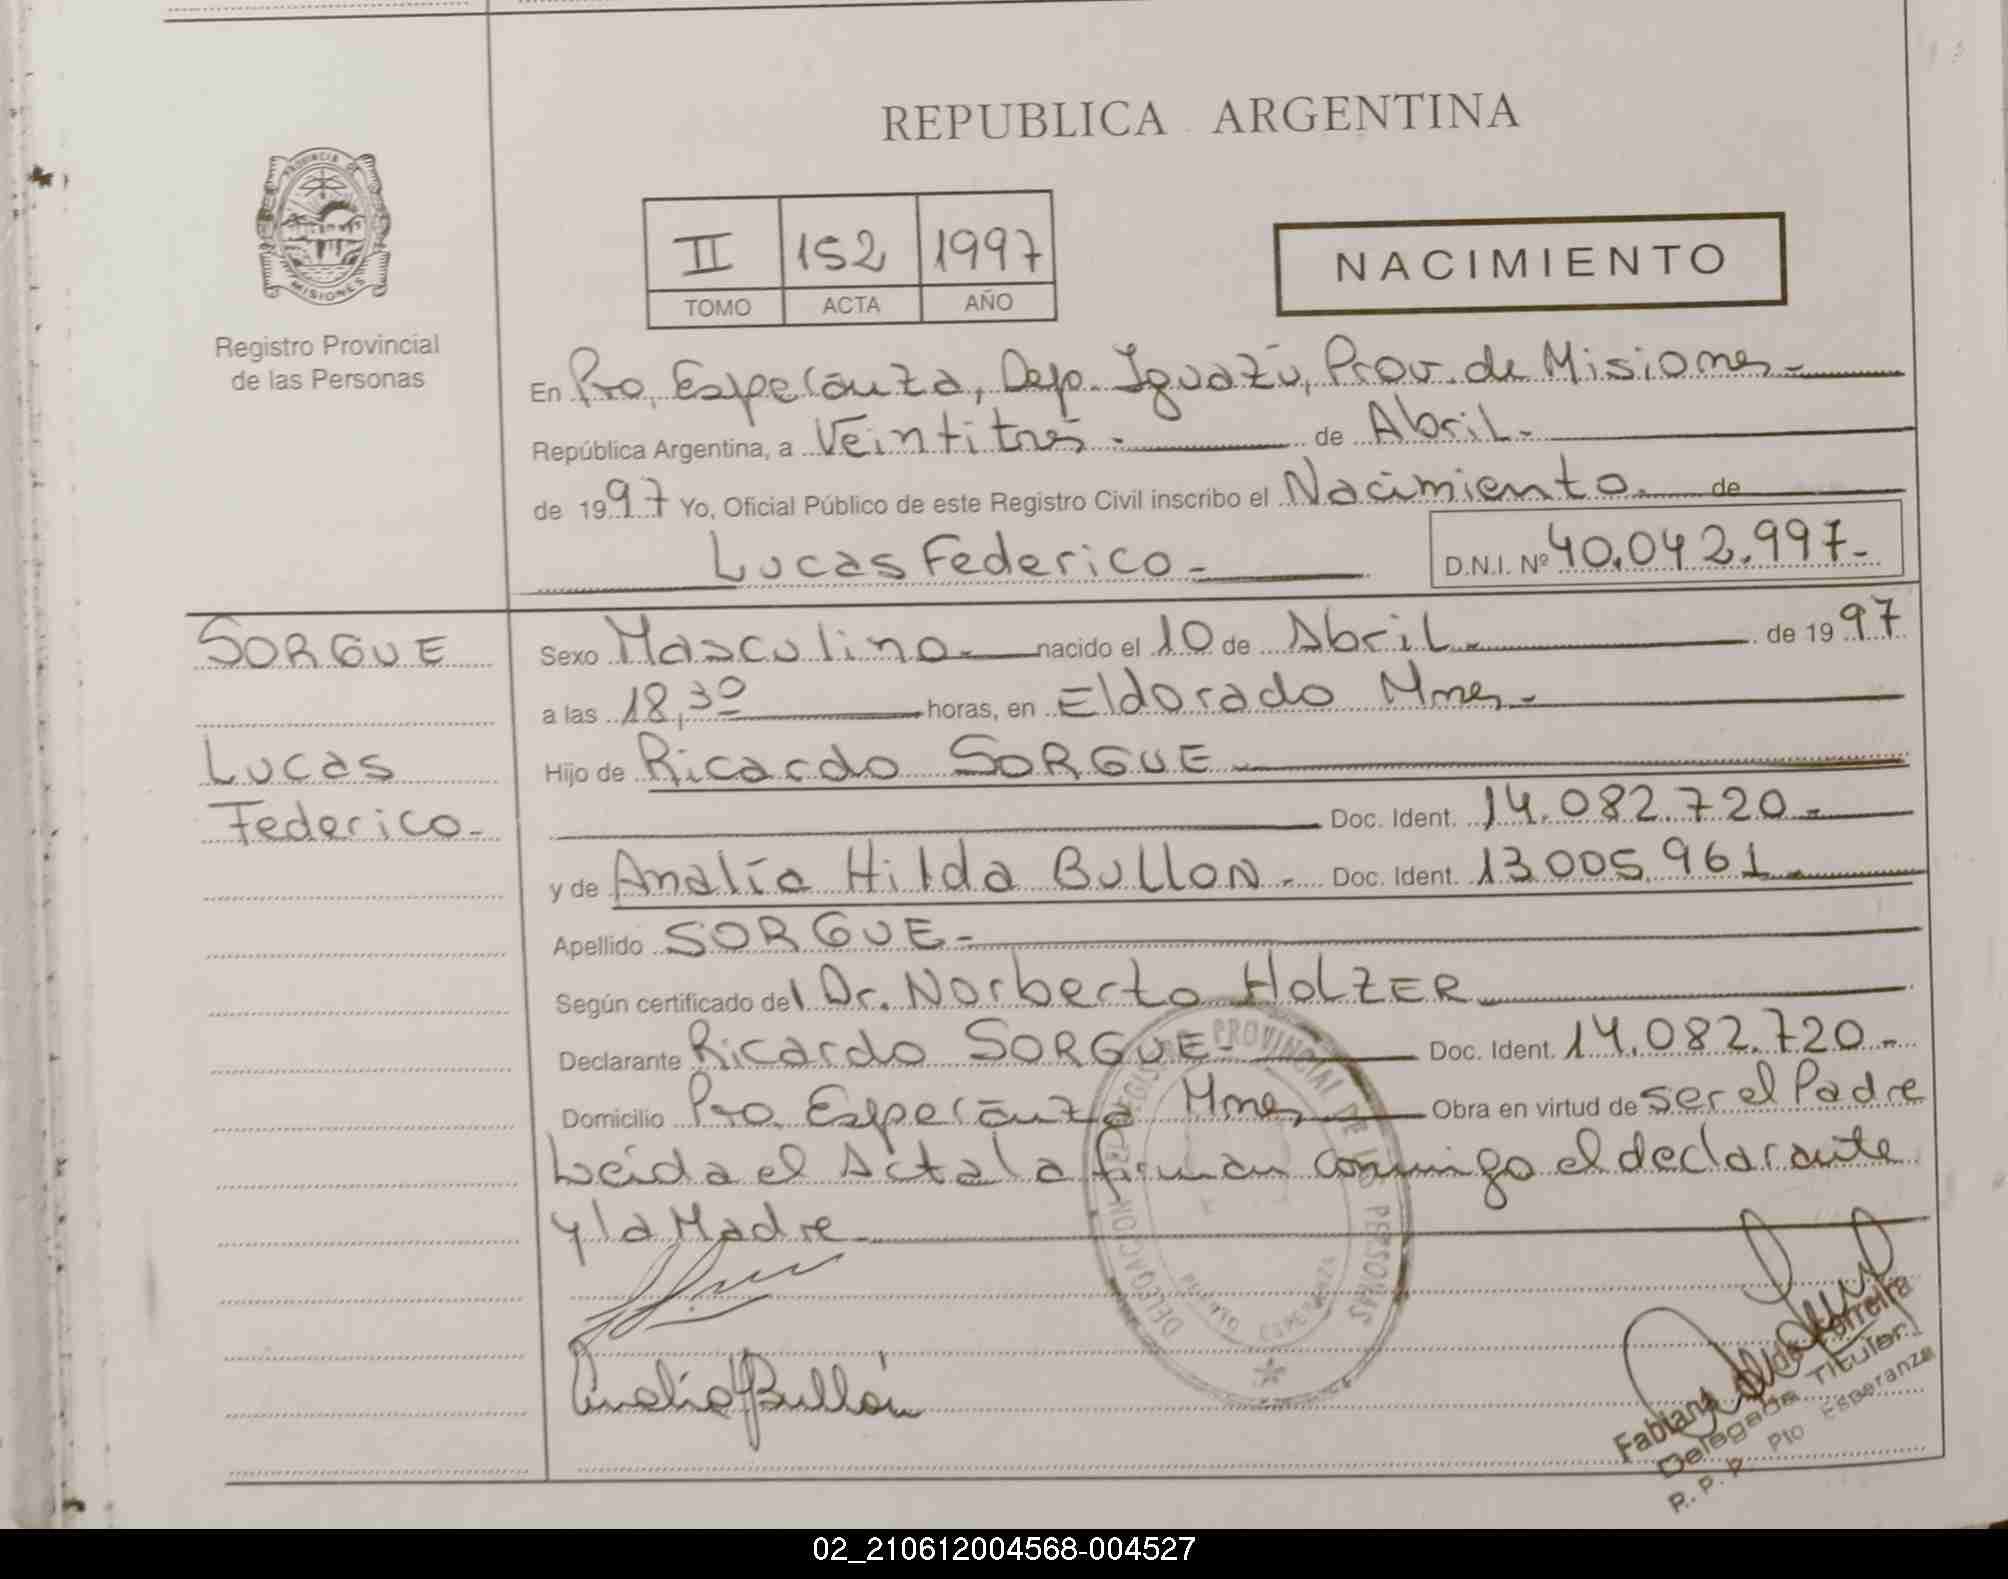 REPUBLICA ARGENTINA
PROVINCIA DE
MISIONES
Registro Provincial
de las Personas
II 152 1997
TOMO ACTA AÑO
NACIMIENTO
En Pto. Esperanza, Dep. Iguazú, Prov. de Misiones.-
República Argentina, a Veintitres.- de Abril.-
de 1997 Yo, Oficial Público de este Registro Civil inscribo el Nacimiento. de
Lucas Federico.- D.N.I. Nº 40.042.997.-
SORGUE
Lucas
Federico.-
Sexo Masculino.- nacido el 10 de Abril.- de 1997
a las 18,30 horas, en Eldorado Mnes.-
Hijo de Ricardo SORGUE.-
Doc. Ident. 14.082.720.-
y de Analía Hilda BULLON.- Doc. Ident. 13.005.961.-
Apellido SORGUE.-
Según certificado del Dr. Norberto HOLZER.-
Declarante Ricardo SORGUE.- Doc. Ident. 14.082.720.-
Domicilio Pto. Esperanza Mnes Obra en virtud de ser el Padre
Leída el Acta la firman conmigo el declarante
y la Madre.-
REGISTRO PROVINCIAL DE LAS PERSONAS
DELEGACION
PUERTO ESPERANZA
Analia Bullón
Fabiana Ferreira
Delegada Titular
R. P. P. Pto Esperanza
02_210612004568-004527